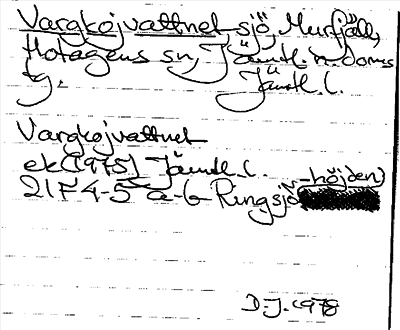 Vargkojvattnet, sjö, Murfjäll,
Hotagens sn, Jämtl. n. doms
tg. Jämtl. l.
Vargkojvattnet
ek (1975) Jämtl. l.
21F 4-5 a-b Ringsjö-höjden)
D.J. 1978